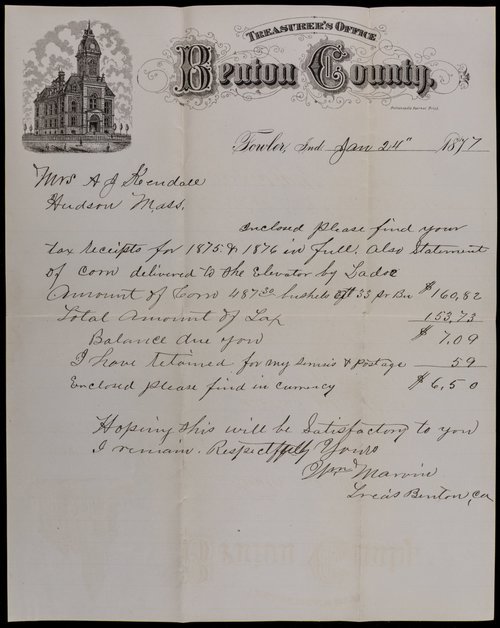 TREASURER'S OFFICE
Benton County,
Fowler, Ind. Jan 24" 1877
Mrs A J Kendall
Hudson Mass.
Enclosed please find your
tax receipts for 1875 & 1876 in full. Also Statement
of corn delivered to the Elevator by
Amount of Corn 487 30 bushels @ 33 pr Bu $160,82
Total Amount of Tax 153,73
Balance due you $7,09
I have retained for my & Postage 59
Enclosed please find in currency $6,50
Hoping this will be Satisfactory to you
I remain. Respectfully Yours
Wm Marvin
Treas Benton, Co